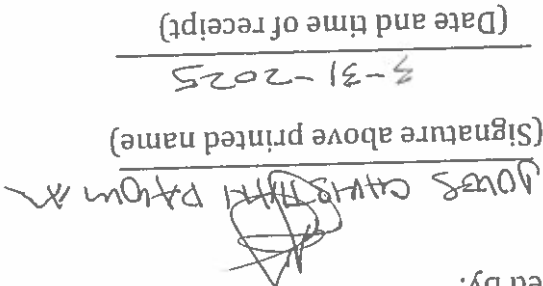 ed by:
CHRISTIAN
(Signature above printed name)
3-31-2025
(Date and time of receipt)